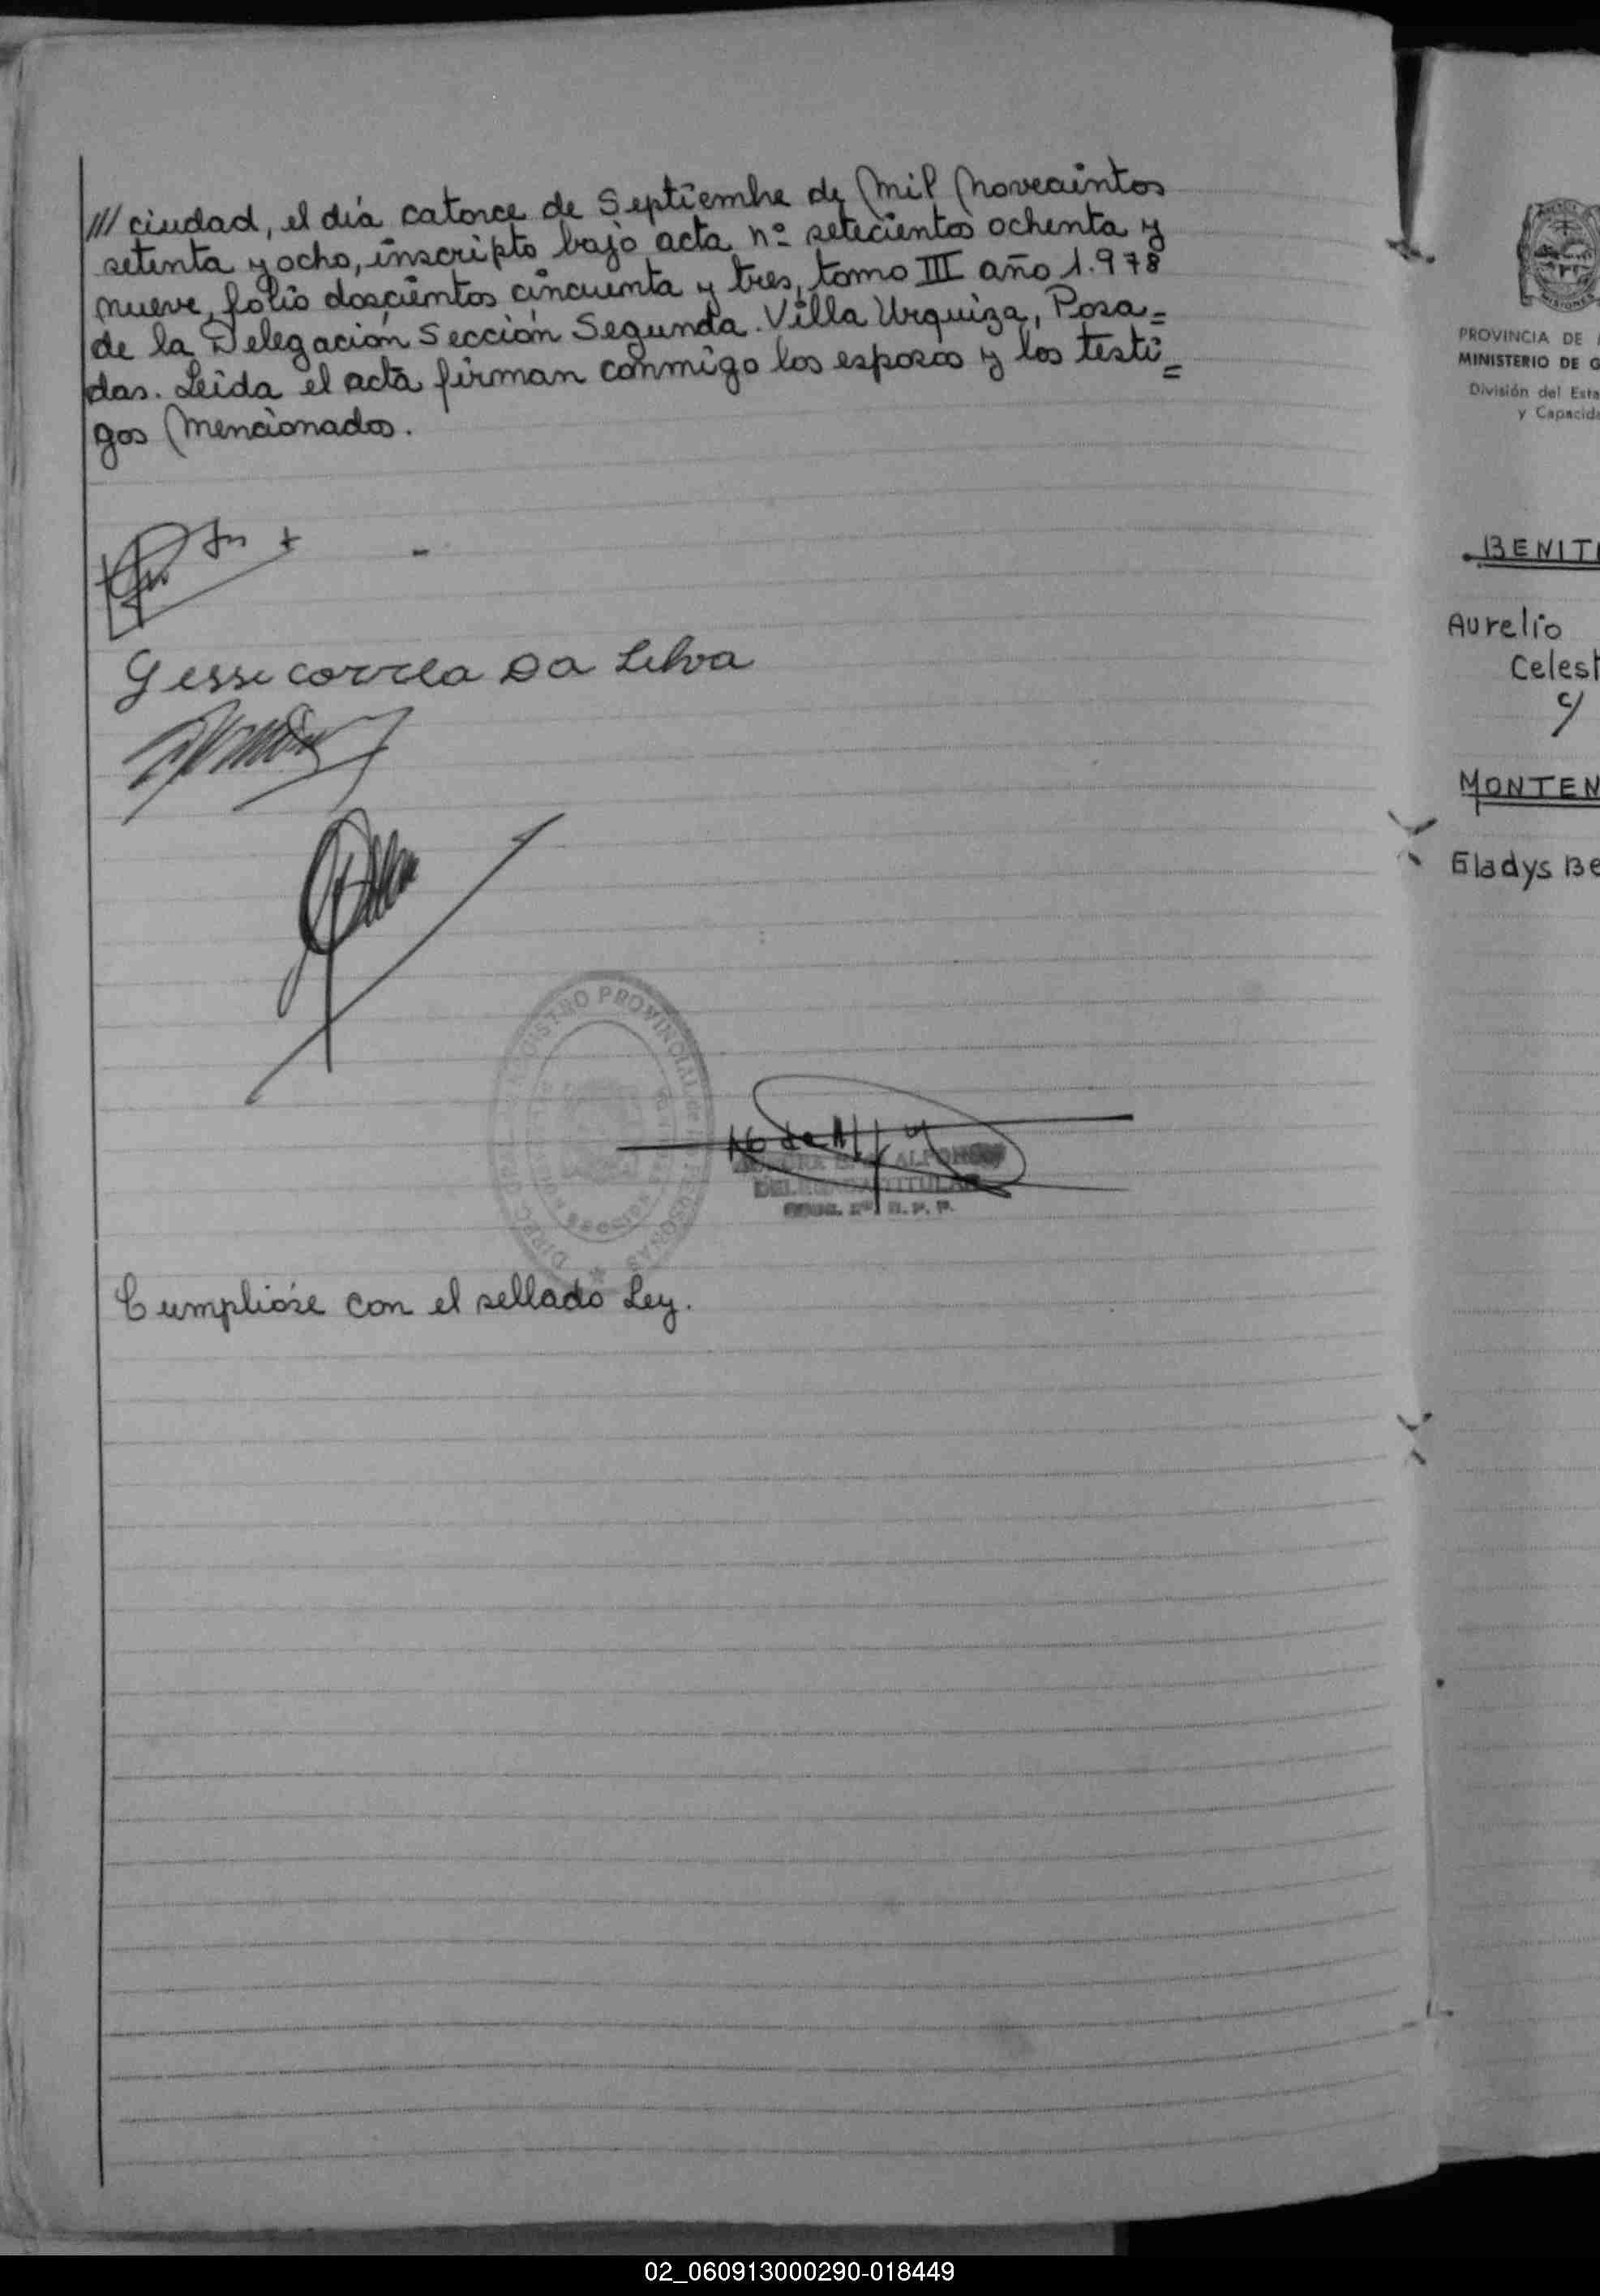 /// ciudad, el día catorce de Septiembre de Mil Novecientos
setenta y ocho, inscripto bajo acta nº setecientos ochenta y
nueve, folio doscientos cincuenta y tres, tomo III año 1.978
de la Delegación Sección Segunda. Villa Urquiza, Posa=
das. Leida el acta firman conmigo los esposos y los testi=
gos Mencionados.
Gessi correa Da Silva
REGISTRO PROVINCIAL de las PERSONAS
ALFONSO
DELEGADA TITULAR
R. P. P.
Cumplióse con el sellado Ley.
MISIONES
PROVINCIA DE
MINISTERIO DE G
División del Esta
y Capacida
BENIT
Aurelio
Celest
c/
MONTEN
Gladys Be
02_060913000290-018449